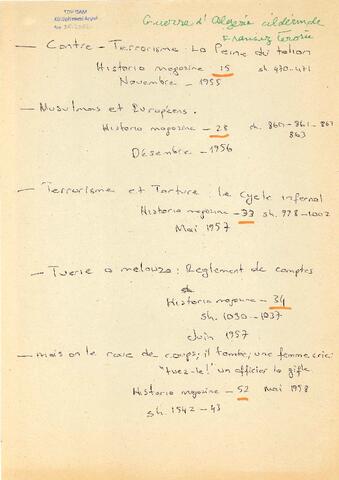 TDV İSAM
Kütüphanesi Arşivi
No
Guerre d'Algerie üldürmede
Fransız Terörü
— Contre - Terrorisme: La Peine du talion
Historia magazine - 15 sh. 470-471
Novembre - 1955
— Musulmans et Européens.
Historia magazine - 28 sh. 860-861-867
863
Désembre - 1956
— Terrorisme et Torture: le Cycle infernal
Historia magazine - 33 sh. 978-1002
Mai 1957
— Tuerie a melouza: Reglement de comptes
Historia magazine - 34
sh. 1030-1037
Juin 1957
— mais on le roue de coups; il tombe; une femme crie:
"tuez-le!" un officier la gifle.
Historia magazine - 52 Mai 1958
sh. 1542-43